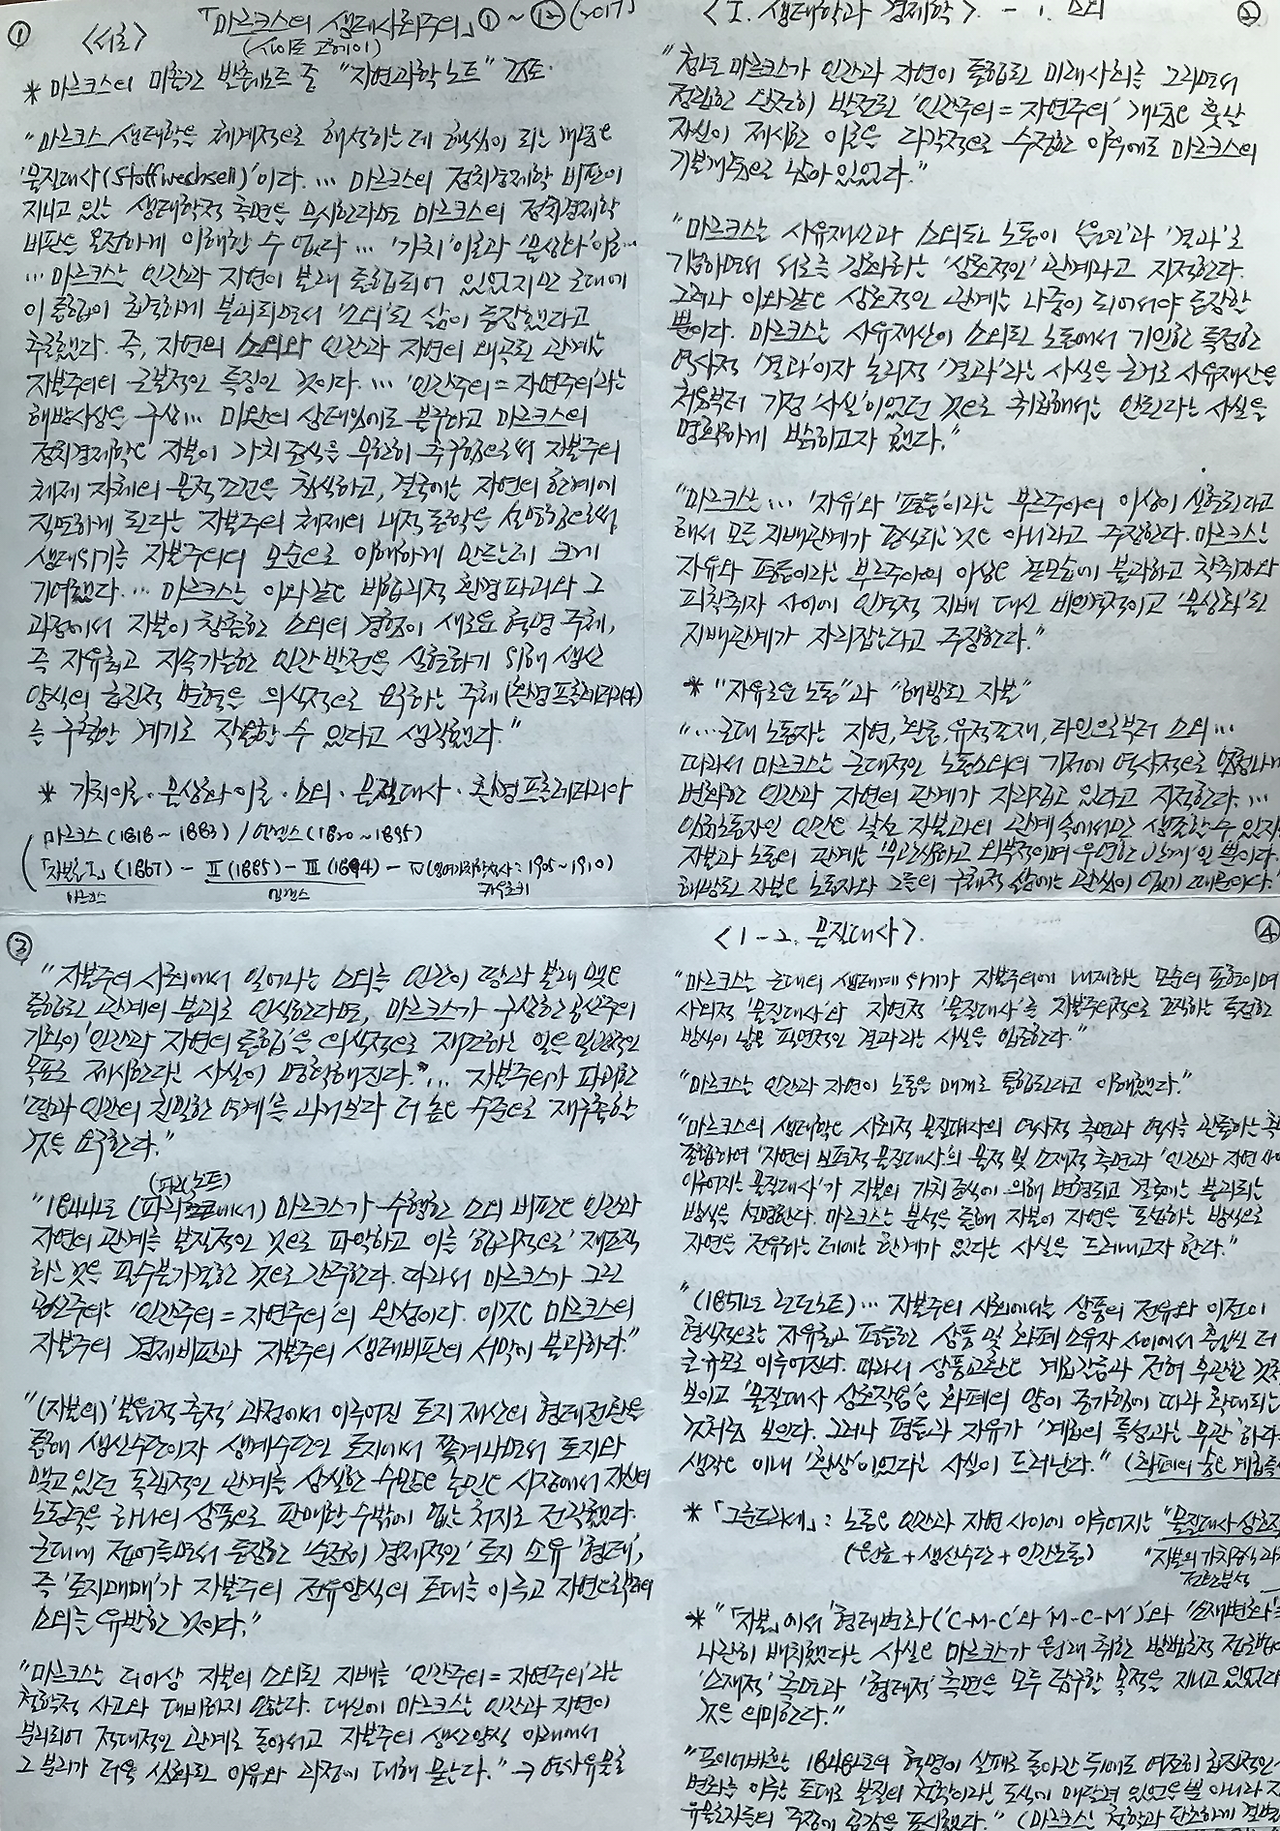 ①
〈서론〉
「마르크스의 생태사회주의」 ①~⑫ (2017)
(사이토 고헤이)
* 마르크스의 미출간 발췌노트 중 "자연과학노트" 검토.
"마르크스 생태학을 체계적으로 해석하는 데 핵심이 되는 개념은
'물질대사(Stoffwechsel)'이다. … 마르크스의 정치경제학 비판이
지니고 있는 생태학적 측면을 무시한다면 마르크스의 정치경제학
비판을 온전하게 이해할 수 없다 … '가치'이론과 '물상화'이론…
… 마르크스는 인간과 자연이 본래 통합되어 있었지만 근대에
이 통합이 급격하게 분리되면서 '소외'된 삶이 등장했다고
추론했다. 즉, 자연의 소외와 인간과 자연의 왜곡된 관계는
자본주의의 근본적인 특징인 것이다. … '인간주의=자연주의'라는
해방사상을 구상… 미완의 상태임에도 불구하고 마르크스의
정치경제학은 자본이 가치증식을 무한히 추구함으로써 자본주의
체제 자체의 물적 조건을 침식하고, 결국에는 자연의 한계에
직면하게 된다는 자본주의 체제의 내적 동학을 설명함으로써
생태위기를 자본주의의 모순으로 이해하게 만드는데 크게
기여했다. … 마르크스는 이와같은 비합리적 환경파괴와 그
과정에서 자본이 창출한 소외의 경험이 새로운 혁명 주체,
즉 자유롭고 지속가능한 인간 발전을 실현하기 위해 생산
양식의 급진적 변혁을 의식적으로 요구하는 주체(환경프롤레타리아)
를 구축할 계기로 작용할 수 있다고 생각했다."
* 가치이론 · 물상화 이론 · 소외 · 물질대사 · 환경 프롤레타리아
마르크스(1818~1883) / 엥겔스(1820~1895)
「자본론Ⅰ」(1867) - Ⅱ(1885) - Ⅲ(1894) - Ⅳ(잉여가치학설사: 1905~1910)
마르크스 엥겔스 카우츠키
②
〈Ⅰ. 생태학과 경제학〉 - 1. 소외
"청년 마르크스가 인간과 자연이 통합된 미래사회를 그리면서
정립한 완전히 발전된 '인간주의=자연주의' 개념은 훗날
자신이 제시한 이론을 다각적으로 수정한 이후에도 마르크스의
기본개념으로 남아 있었다."
"마르크스는 사유재산과 소외된 노동이 '원인'과 '결과'로
기능하면서 서로를 강화하는 '상호적인' 관계라고 지적한다.
그러나 이와같은 상호적인 관계는 나중이 되어서야 등장할
뿐이다. 마르크스는 사유재산이 소외된 노동에서 기인한 특정한
역사적 '결과'이자 논리적 '결과'라는 사실을 근거로 사유재산을
처음부터 가정 '사실'이었던 것으로 취급해서는 안된다는 사실을
명확하게 밝히고자 했다."
"마르크스는 … '자유'와 '평등'이라는 부르주아의 이상이 실현된다고
해서 모든 지배관계가 폐지되는 것은 아니라고 주장한다. 마르크스는
자유와 평등이라는 부르주아의 이상은 겉모습에 불과하고 착취자와
피착취자 사이에 인격적 지배 대신 비인격적이고 '물상화'된
지배관계가 자리잡는다고 주장한다."
* "자유로운 노동"과 "해방된 자본"
"…근대 노동자는 자연, 활동, 유적존재, 타인으로부터 소외…
따라서 마르크스는 근대적인 노동소외의 기저에 역사적으로
변화한 인간과 자연의 관계가 자리잡고 있다고 지적한다. …
임금노동자인 인간은 날로 자본과의 관계 속에서만 생존할 수 있지
자본과 노동의 관계는 '무관심하고 외부적이며 우연한 관계'일 뿐이다.
해방된 자본은 노동자와 그들의 구체적 삶에는 관심이 없기 때문이다."
③
"자본주의 사회에서 일어나는 소외를 인간이 땅과 본래 맺은
통합된 관계의 분리로 인식한다면, 마르크스가 구상한 공산주의
기획이 '인간과 자연의 통합'을 의식적으로 '재건하는 일'을 일관적인
목표로 제시한다는 사실이 명확해진다. … 자본주의가 파괴한
'땅과 인간의 친밀한 연계'를 나머지보다 더 높은 수준으로 재구축할
것을 요구한다."
(파리노트)
"1844년 (파리 에서) 마르크스가 수행한 소외 비판은 인간과
자연의 관계를 본질적인 것으로 파악하고 이를 '합리적으로' 재조직
하는 것을 필수불가결한 것으로 간주한다. 따라서 마르크스가 그린
공산주의는 '인간주의=자연주의'의 완성이다. 이것은 마르크스의
자본주의 경제비판과 자본주의 생태비판의 서막에 불과하다."
"(자본의) '본원적 축적' 과정에서 이루어진 토지 재산의 형태전환을
통해 생산수단이자 생계수단인 토지에서 쫓겨나면서 토지와
맺고 있던 독립적인 관계를 상실한 수많은 농민은 시장에서 자신의
노동력을 하나의 상품으로 판매할 수밖에 없는 처지로 전락했다.
근대에 접어들면서 등장한 '순전히 경제적인' 토지 소유 '형태',
즉 '토지매매'가 자본주의 전유양식의 토대를 이루고 자연으로부터의
소외를 유발한 것이다."
"마르크스는 더이상 자본의 소외된 지배를 '인간주의=자연주의'라는
철학적 사고와 대비하지 않는다. 대신에 마르크스는 인간과 자연이
분리되어 적대적인 관계로 돌아서고 자본주의 생산양식 아래에서
그 분리가 더욱 심화된 이유와 과정에 대해 묻는다." → 역사유물론
④
〈1-2. 물질대사〉.
"마르크스는 근대의 생태계 위기가 자본주의에 내재하는 모순의 표현이며
사회적 '물질대사'와 자연적 '물질대사'를 자본주의적으로 조직하는 독특한
방식이 낳은 필연적인 결과라는 사실을 입증한다."
"마르크스는 인간과 자연이 노동을 매개로 통합된다고 이해했다."
"마르크스의 생태학은 사회적 물질대사의 역사적 측면과 역사를 관통하는 측
결합하여 '자연의 보편적 물질대사'의 물적 및 소재적 측면과 '인간과 자연 사이
이루어지는 물질대사'가 자본의 가치증식에 의해 변형되고 결국에는 분리되는
방식을 설명한다. 마르크스는 분석을 통해 자본이 자연을 포섭하는 방식으로
자연을 전유하는 데에는 한계가 있다는 사실을 드러내고자 한다."
"(1851년 런던노트) … 자본주의 사회에서는 상품의 전유와 이전이
형식적으로 자유롭고 평등한 상품 및 화폐 소유자 사이에서 훨씬 더
큰 규모로 이루어진다. 따라서 상품교환은 계급갈등과 전혀 무관한 것처
보이고 '물질대사 상호작용'은 화폐의 양이 증가함에 따라 확대되는
것처럼 보인다. 그러나 평등과 자유가 '계급의 특성과는 무관'하다
생각은 이내 '환상'이었다는 사실이 드러난다."
* 「그룬트리세」: 노동은 인간과 자연 사이에 이루어지는 "물질대사 상호작
(원료 + 생산수단 + 인간노동) "자본의 가치증식 과
* "「자본」에서 '형태변화('C-M-C'와 'M-C-M')'와 '소재변화'를
나란히 배치했다는 사실은 마르크스가 원래 취한 방법론적 접근법이
'소재적' 측면과 '형태적' 측면을 모두 탐구할 목적을 지니고 있었다
것을 의미한다."
"포이어바흐는 1848년의 혁명이 실패로 돌아간 뒤에도 여전히 급진적인
변화를 이룰 토대로 본질의 철학이라는 도식에 매달려 있었을 뿐 아니라 자
유물론자들의 주장에 공감을 표시했다." (마르크스는 철학과 단호하게 결별